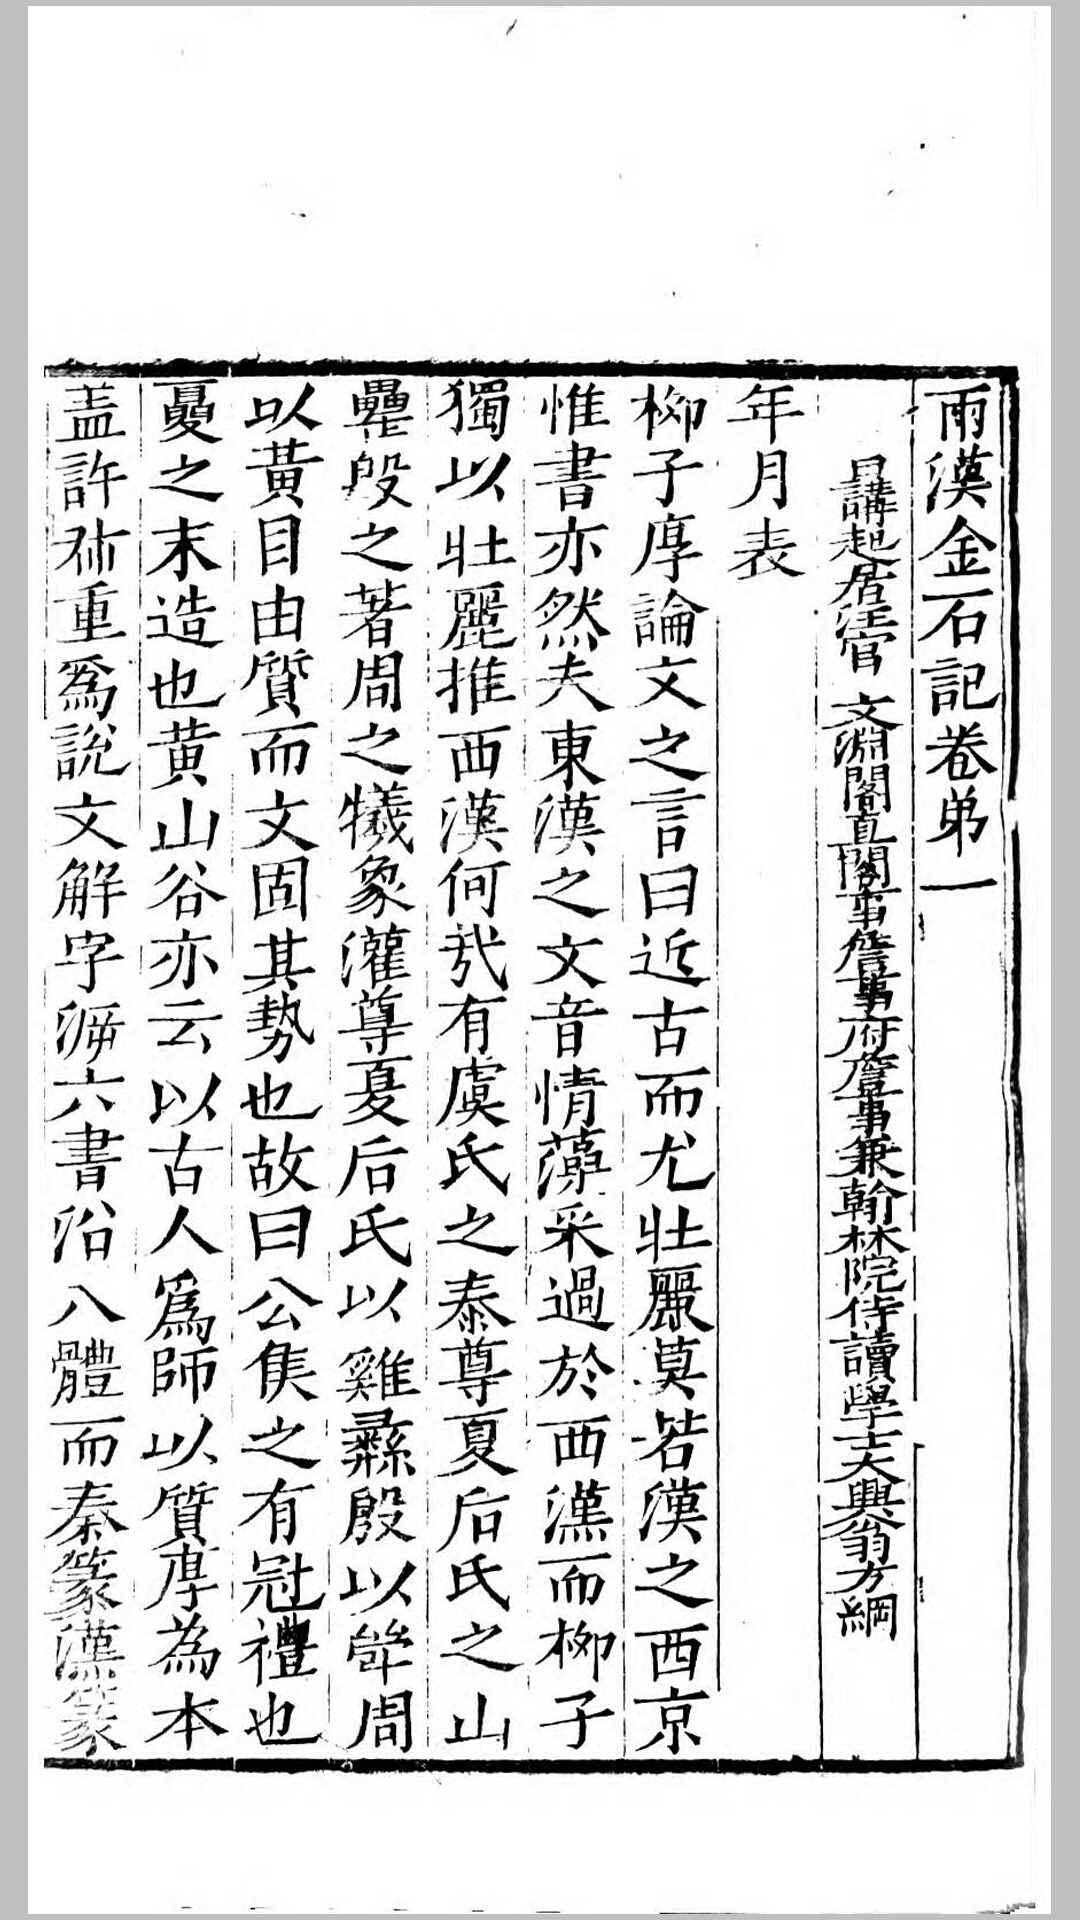 兩漢金石記卷弟一
日講起居注官 文淵閣直閣事詹事府詹事兼翰林院侍讀學士大興翁方綱
年月表
栁子厚論文之言曰近古而尤壯麗莫若漢之西京
惟書亦然夫東漢之文音情藻采過於西漢而栁子
獨以壯麗推西漢何哉有虞氏之泰尊夏后氏之山
罍殷之著周之犧象灌尊夏后氏以雞彝殷以斝周
以黃目由質而文固其勢也故曰公矦之有冠禮也
夏之末造也黃山谷亦云以古人爲師以質厚為本
盖許祭重爲說文解字㴑六書沿八體而秦篆漢篆